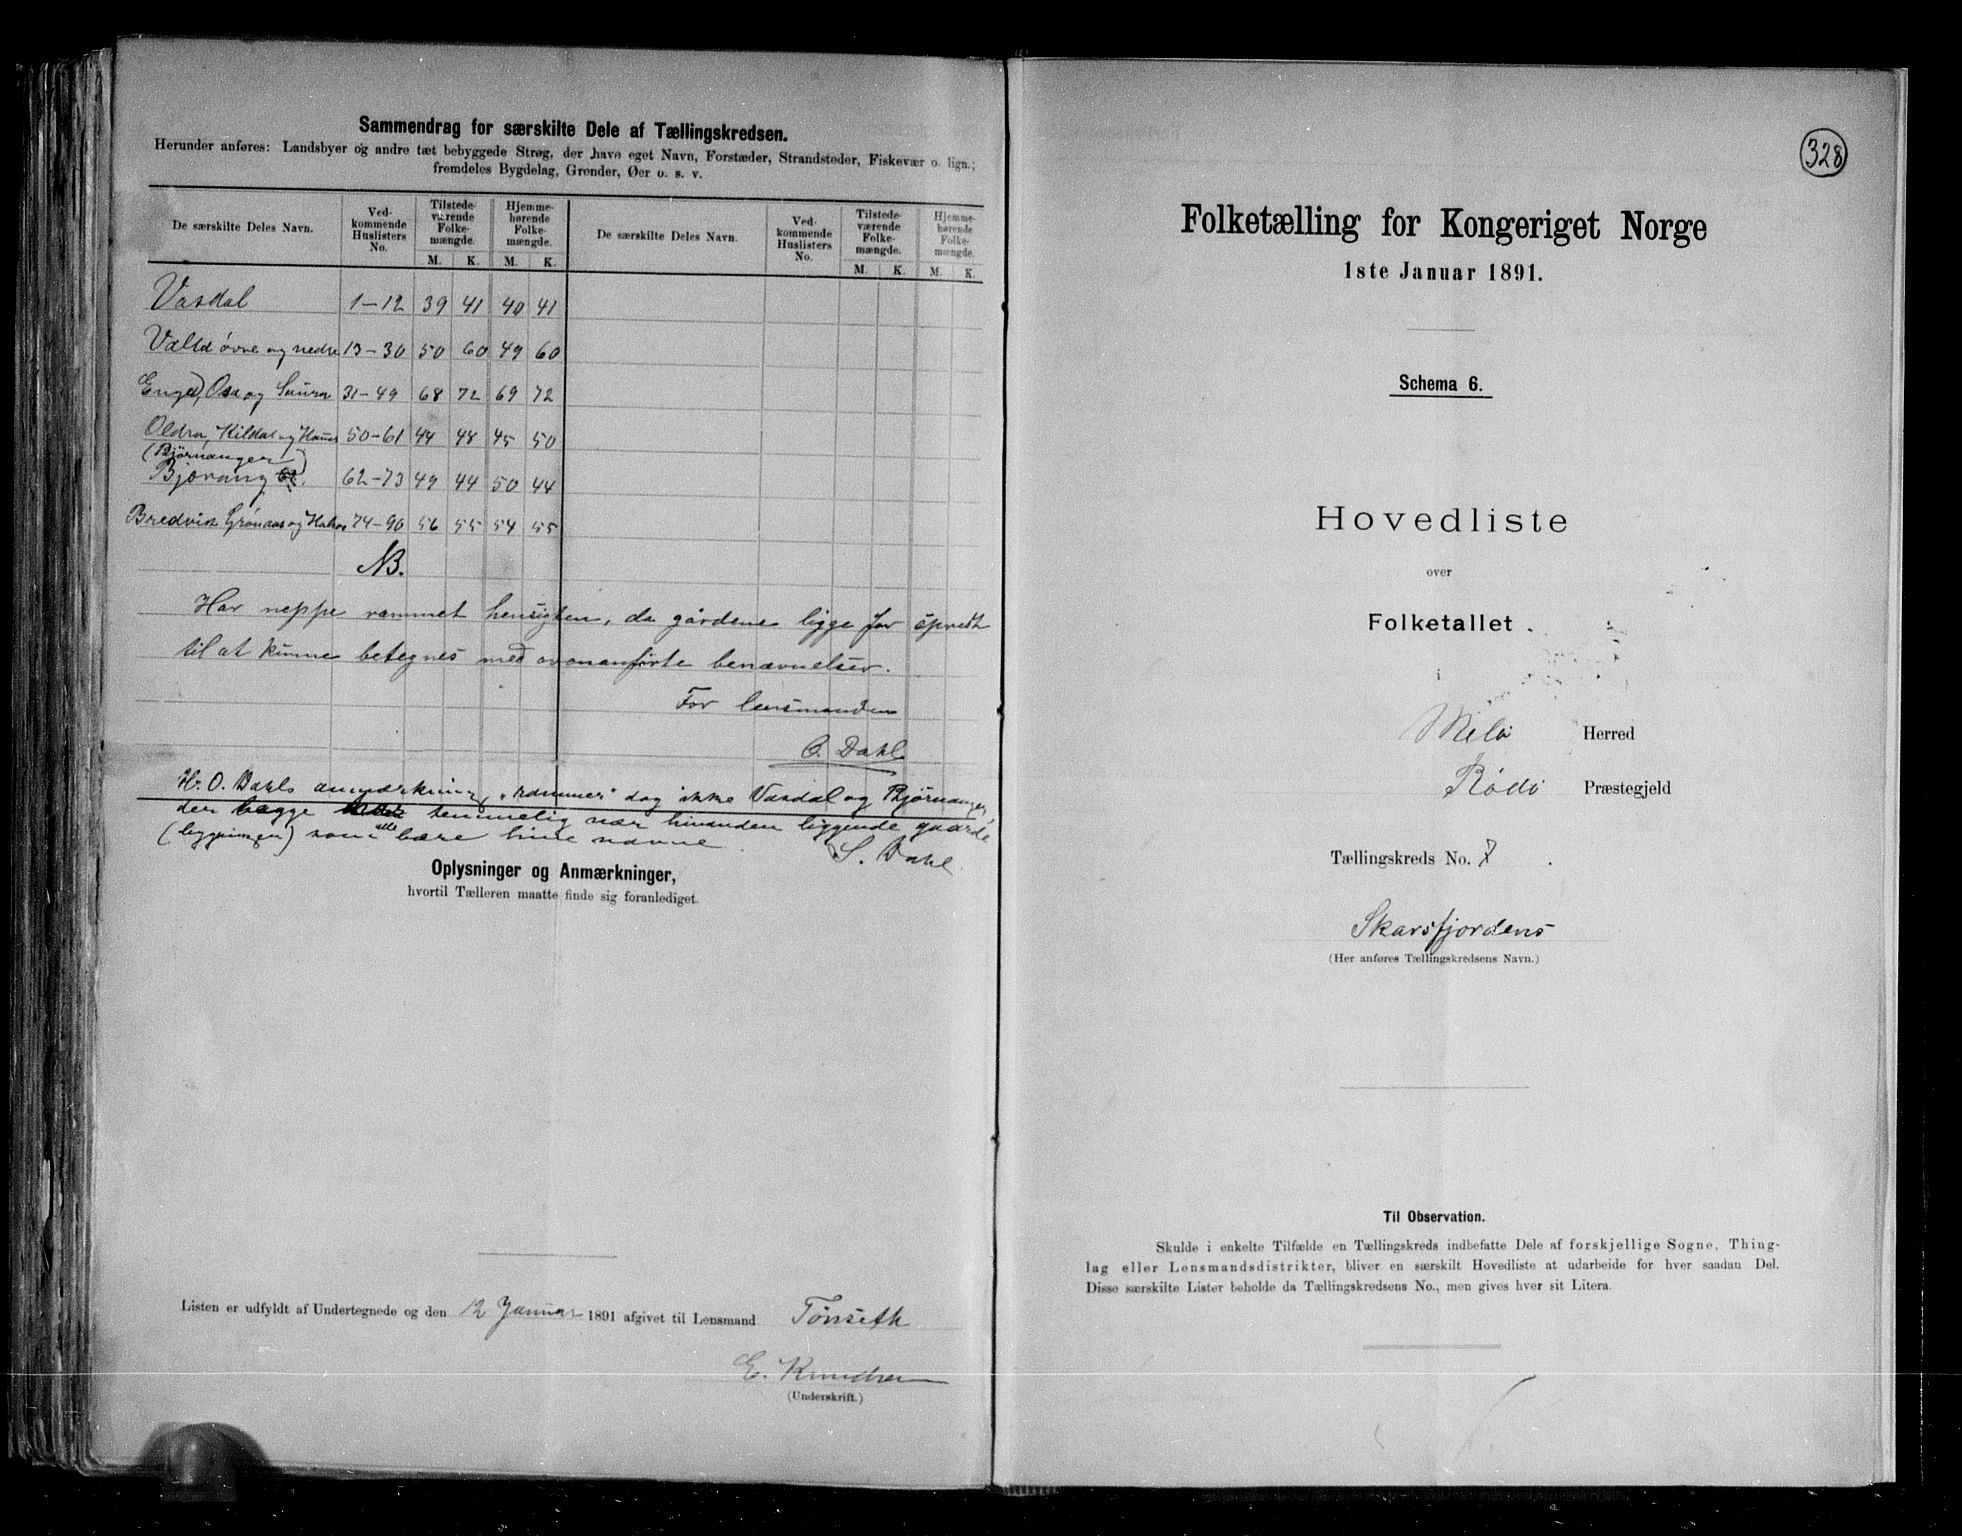 Sammendrag for særskilte Dele af Tællingskredsen.
Herunder anføres: Landsbyer og andre tæt bebyggede Strøg, der have eget Navn, Forstæder, Strandsteder, Fiskevær o. lign.;
fremdeles Bygdelag, Grender, Øer o. s. v.
De særskilte Deles Navn. Ved-kommende Huslisters No. Tilstede-værende Folke-mængde. Hjemme-hørende Folke-mængde. De særskilte Deles Navn. Ved-kommende Huslisters No. Tilstede-værende Folke-mængde. Hjemme-hørende Folke-mængde.
M. K. M. K. M. K. M. K.
Vasdal 1-12 39 41 40 41
øvre og nedre 13-30 50 60 49 60
Osa og 31-49 68 72 69 72
Oldra, Kildal og 50-61 44 48 45 50
(Bjørnanger)
Bjærang 62-73 49 44 50 44
Bredvik Grønaas og 74-90 56 55 54 55
NB.
Har neppe rammet hensigten, da gårdene ligge for spredt
til at kunne betegnes med ovenanførte benævnelser.
For lensmanden
O. Dahl
Hr. O. Dahls anmærkning „rammer" dog ikke Vasdal og Bjørnanger,
der begge temmelig nær hinanden liggende gaarde
(bygninger) som alle bære hine navne.
S. Dahl.
Oplysninger og Anmærkninger,
hvortil Tælleren maatte finde sig foranlediget.
Listen er udfyldt af Undertegnede og den 12 Januar 1891 afgivet til Lensmand Tønseth
E. Knudsen
(Underskrift.)
328
Folketælling for Kongeriget Norge
1ste Januar 1891.
Schema 6.
Hovedliste
over
Folketallet
Melø Herred
Rødø Præstegjeld
Tællingskreds No. 7.
Skarsfjordens
(Her anføres Tællingskredsens Navn.)
Til Observation.
Skulde i enkelte Tilfælde en Tællingskreds indbefatte Dele af forskjellige Sogne, Thing-
lag eller Lensmandsdistrikter, bliver en særskilt Hovedliste at udarbeide for hver saadan Del.
Disse særskilte Lister beholde da Tællingskredsens No., men gives hver sit Litera.